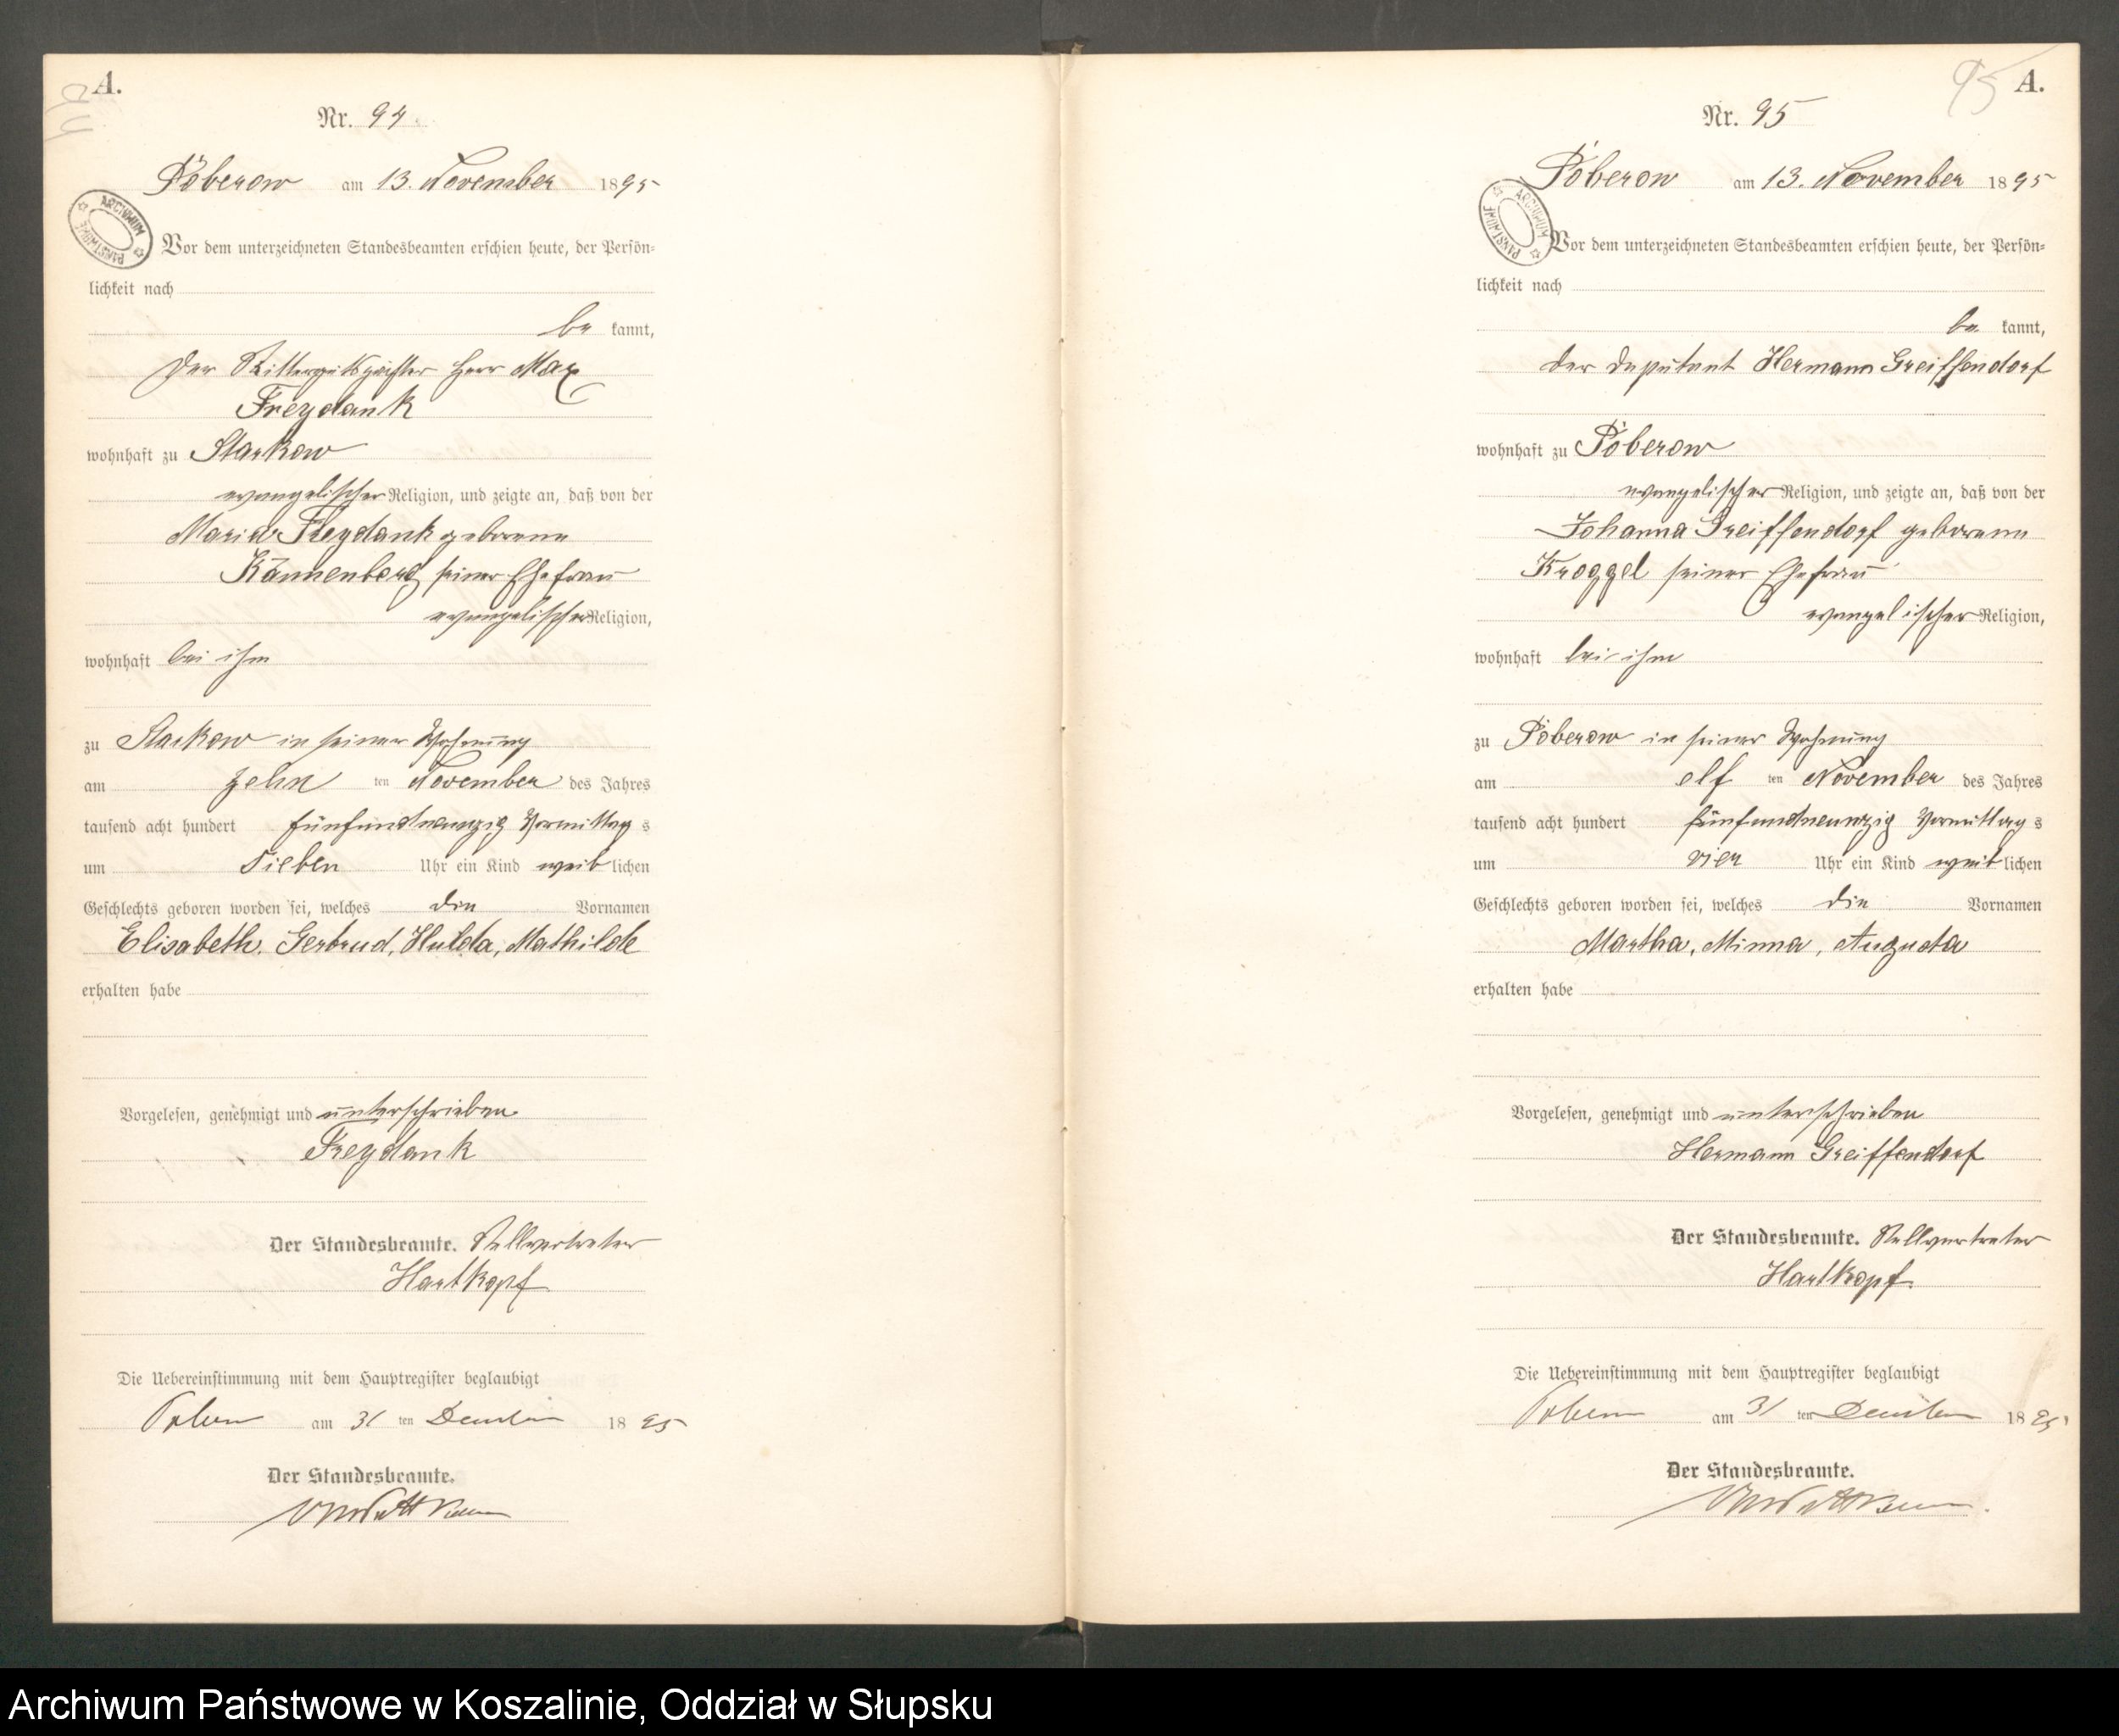 A.
Nr. 94
Pöberow am 13. November 1895
ARCHIWUM PAŃSTWOWE
Vor dem unterzeichneten Standesbeamten erschien heute, der Persön-
lichkeit nach
be kannt,
der Rittergutspächter Herr Max
Freydank
wohnhaft zu Starkow
evangelischer Religion, und zeigte an, daß von der
Maria Freydank geborene
Kannenberg seiner Ehefrau
evangelischer Religion,
wohnhaft bei ihm
zu Starkow in seiner Wohnung
am zehn ten November des Jahres
tausend acht hundert fünfundneunzig Vormittag s
um sieben Uhr ein Kind weib lichen
Geschlechts geboren worden sei, welches die Vornamen
Elisabeth, Gertrud, Hulda, Mathilde
erhalten habe
Vorgelesen, genehmigt und unterschrieben
Freydank
Der Standesbeamte. Stellvertreter
Hartkopf
Die Uebereinstimmung mit dem Hauptregister beglaubigt
am 31 ten December 1895
Der Standesbeamte.
95 A.
Nr. 95
Pöberow am 13. November 1895
ARCHIWUM PAŃSTWOWE
Vor dem unterzeichneten Standesbeamten erschien heute, der Persön-
lichkeit nach
be kannt,
der Deputant Hermann Greiffendorf
wohnhaft zu Pöberow
evangelischer Religion, und zeigte an, daß von der
Johanna Greiffendorf geborene
Kroggel seiner Ehefrau
evangelischer Religion,
wohnhaft bei ihm
zu Pöberow in seiner Wohnung
am elf ten November des Jahres
tausend acht hundert fünfundneunzig Vormittag s
um vier Uhr ein Kind weib lichen
Geschlechts geboren worden sei, welches die Vornamen
Martha, Minna, Augusta
erhalten habe
Vorgelesen, genehmigt und unterschrieben
Hermann Greiffendorf
Der Standesbeamte. Stellvertreter
Hartkopf.
Die Uebereinstimmung mit dem Hauptregister beglaubigt
am 31 ten December 1895
Der Standesbeamte.
Archiwum Państwowe w Koszalinie, Oddział w Słupsku